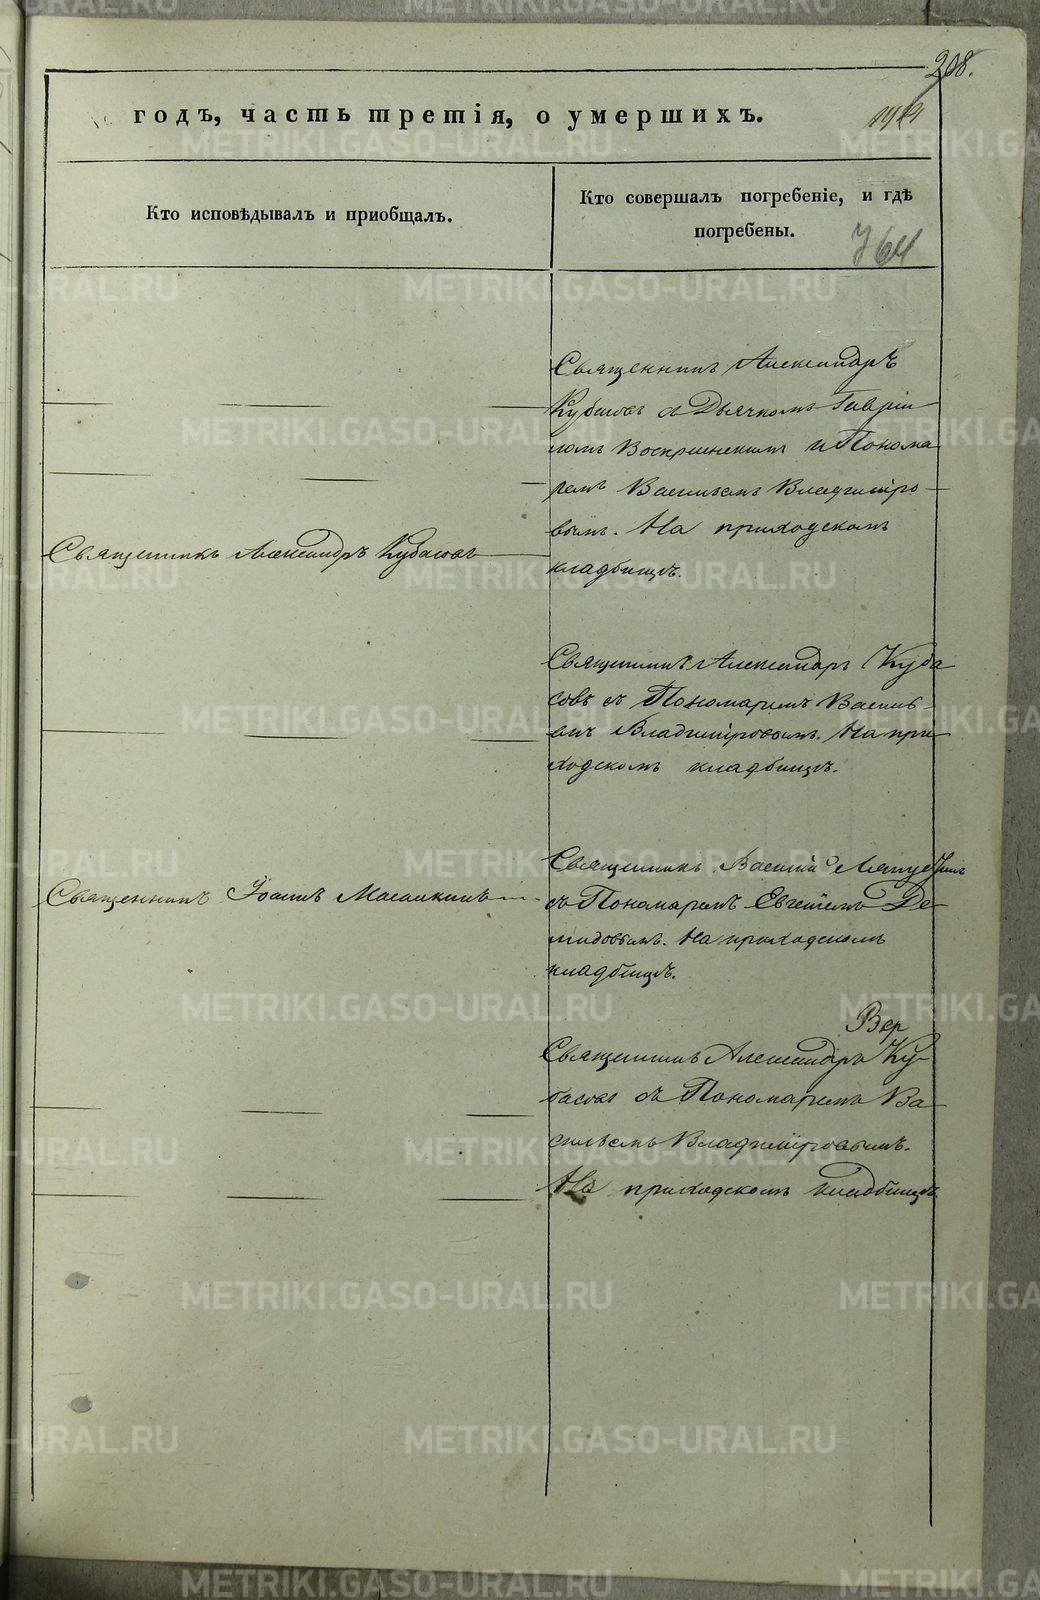 208.
годъ, часть третія, о умершихъ.
Кто исповѣдывалъ и пріобщалъ.
Кто совершалъ погребеніе, и гдѣ
погребены.
764
Священникъ Александръ
Кубасовъ съ Дьячкомъ Гаврiи
ломъ Воскресенскимъ и Понома
ремъ Васильемъ Владимiро
вымъ. На приходскомъ
кладбищѣ.
Священникъ Александръ Кубасовъ
Священникъ Александръ Куба
совъ съ Пономаремъ Василь
емъ Владимiровымъ. На при
ходскомъ кладбищѣ.
Священникъ Василій
съ Пономаремъ Евгеніемъ Де
мидовымъ. На приходскомъ
кладбищѣ.
Священникъ Іоаннъ
Вер
Священникъ Александръ Ку
басовъ съ Пономаремъ Ва
сильемъ Владимiровымъ.
На приходскомъ кладбищѣ.
METRIKI.GASO-URAL.RU